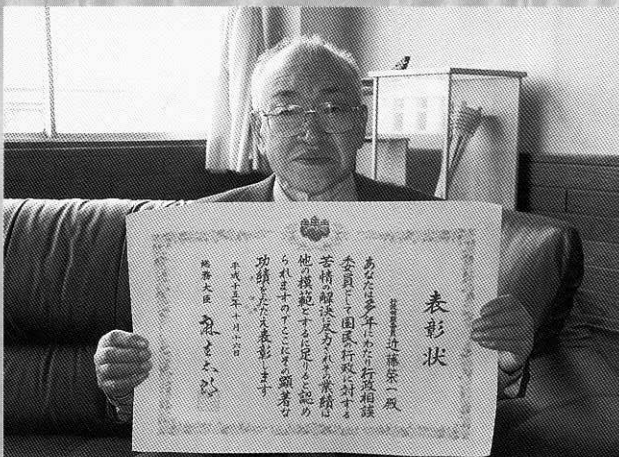 表彰状
行政相談委員 近藤栄一殿
あなたは多年にわたり行政相談
委員として国民の行政に対する
苦情の解決に尽力されその業績は
他の模範とするに足りると認め
られますのでここにその顕著な
功績をたたえ表彰します
平成十五年十月十六日
総務大臣 麻生太郎